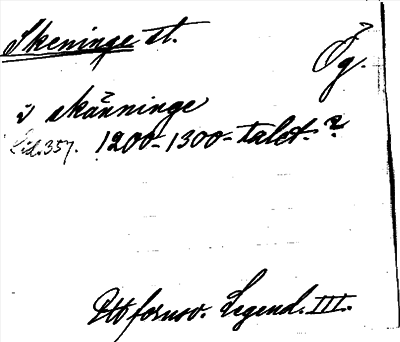 Skeninge st.
Ög.
i skänninge
Sid. 357. 1200-1300-talet. ?
Ett fornsv. Legend. III.